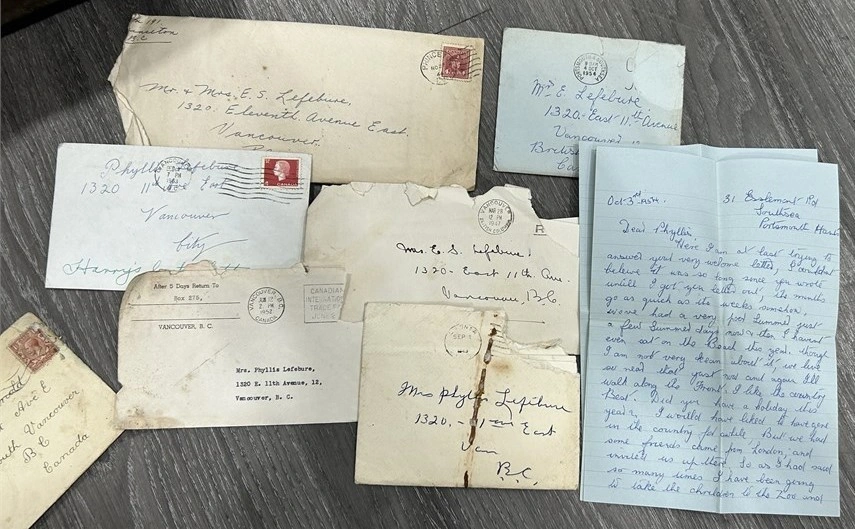 Mr. & Mrs. E. S. Lefebure,
1320. Eleventh Avenue East.
Vancouver.
PORTSMOUTH & SOUTHSEA
4 OCT
1954
Mrs E Lefebure
1320. East 11th Avenue
Vancouver
British
Phyllis Lefebure
1320 11th Ave East
Vancouver
City
VANCOUVER
7 PM
1963
CANADA
VANCOUVER
12 PM
1947
Mrs. E. S. Lefebure,
1320 - East 11th Ave.
Vancouver, B.C.
After 5 Days Return To
Box 275,
VANCOUVER, B. C.
VANCOUVER, B.C.
2 PM
1952
CANADA
CANADIAN
INTERNATIONAL
TRADE FAIR
JUNE
Mrs. Phyllis Lefebure,
1320 E. 11th Avenue, 12,
Vancouver, B. C.
SEP 1
Mrs Phyllis Lefebure
1320. - 11th East
Van
B.C.
Ave E
South Vancouver
B C
Canada
Oct 3rd
31 Esslemont Rd
Southsea
Portsmouth Hants
Dear Phyllis
Here I am at last trying to
answer your very welcome letter, I couldnt
believe it was so long since you wrote
untill I got your letter out, the months
go as quick as the weeks somehow,
Weve had a very poor Summer just
a few Summer days now & then I havent
even sat on the Beach this year. though
I am not very keen about it, we live
so near that just now and again I'll
walk along the Front. I like the country
Best. Did you have a holiday this
year, I would have liked to have gone
in the country for while, But we had
some friends came from London, and
invited us up there, So as I had said
so many times I have been going
to take the children to the Zoo and